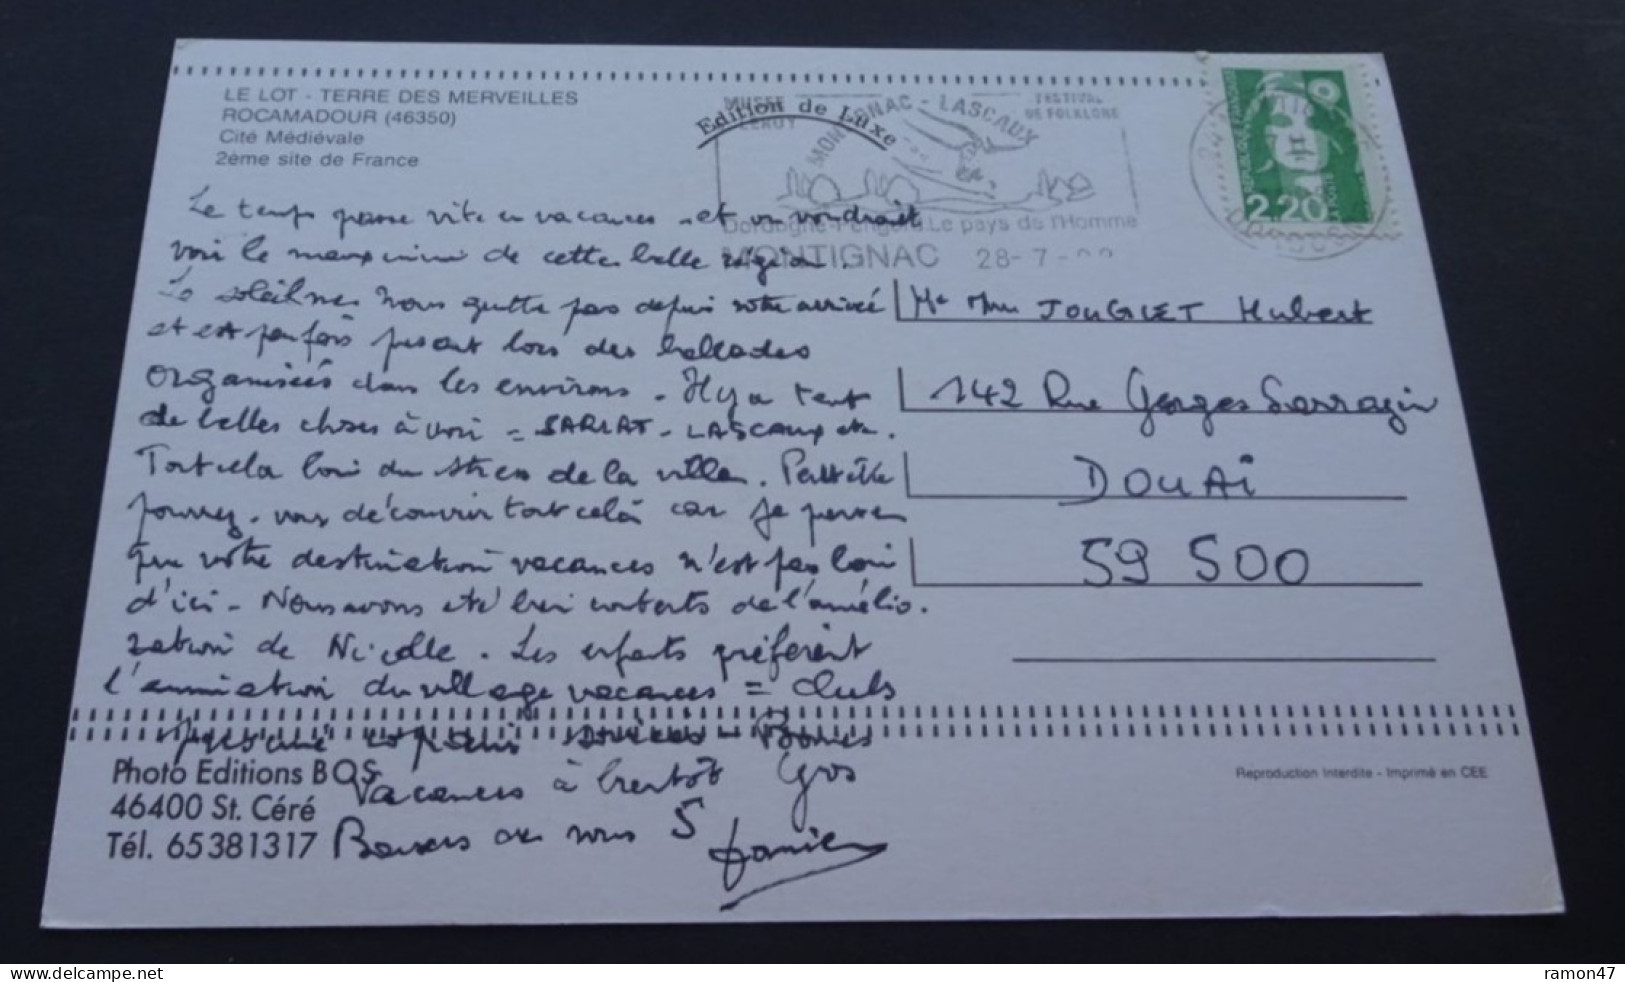 LE LOT - TERRE DES MERVEILLES
ROCAMADOUR (46350)
Cité Médiévale
2ème site de France
Edition de Luxe
MUSEE
LEROY
MONTIGNAC - LASCAUX
FESTIVAL
DE FOLKLORE
Dordogne-Périgord. Le pays de l'Homme
MONTIGNAC 28-7-
REPUBLIQUE FRANÇAISE
2,20
LA POSTE
Le temps passe vite en vacances - et on voudrait
voir le maximum de cette belle région.
Le soleil ne nous quitte pas depuis notre arrivée
et est parfois pesant lors des ballades
organisées dans les environs - Il y a tant
de belles choses à voir = SARLAT - LASCAUX etc.
Tout cela loin du stress de la ville. Peut être
pourrez-vous découvrir tout celà car je pense
que votre destination vacances n'est pas loin
d'ici - Nous avons été bien contents de l'amélio-
ration de Nicolle. Les enfants préfèrent
l'animation du village vacances = clubs
copains soirées - Bonnes
Vacances à bientôt Gros
Baisers de nous 5
Mr Mme JOUGLET Hubert
142 Rue Georges Sarrazin
DOUAI
59 500
Photo Editions BOS
46400 St. Céré
Tél. 65381317
Reproduction Interdite - Imprimé en CEE
delcampe.net
ramon47